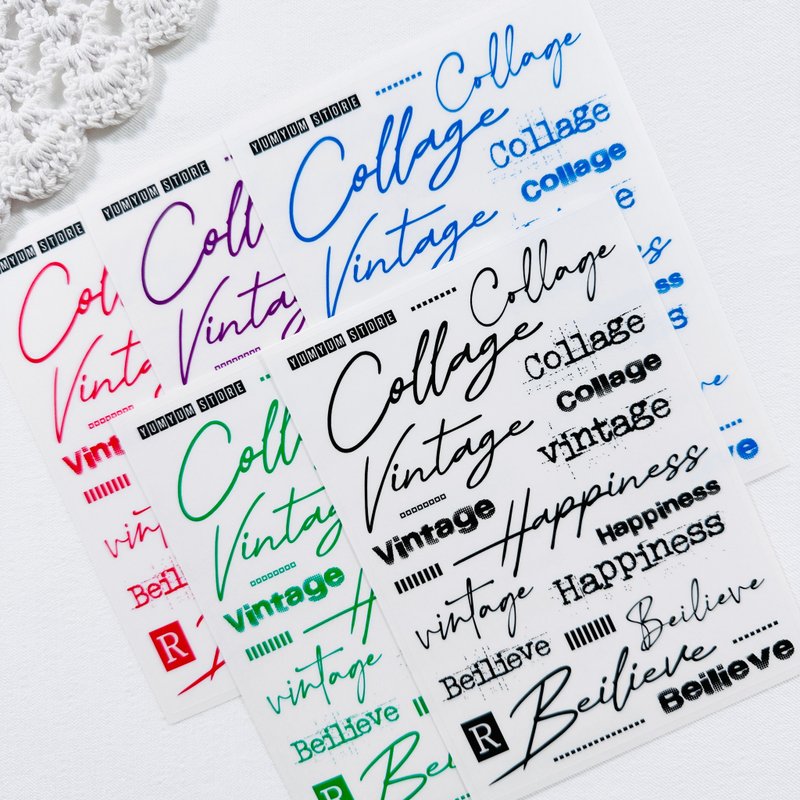 YUMYUM STORE
Collage
Collage
Collage
Collage
Vintage
YUMYUM STORE
Coll
Vinta
YUMYUM STORE
Col
Vinta
Vint
vint
Beil
R
YUMYUM STORE
Coll
Vintag
Vintage
H
vintage
Beilieve
R
Bei
YUMYUM STORE
Collage
Collage
Collage
Collage
Vintage
vintage
Vintage
Happiness
Happiness
Happiness
vintage
Beilieve
Beilieve
Beilieve
Beilieve
R